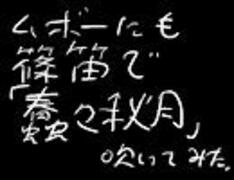 ムボーにも
篠笛で
「蠢々秋月」
吹いてみた。